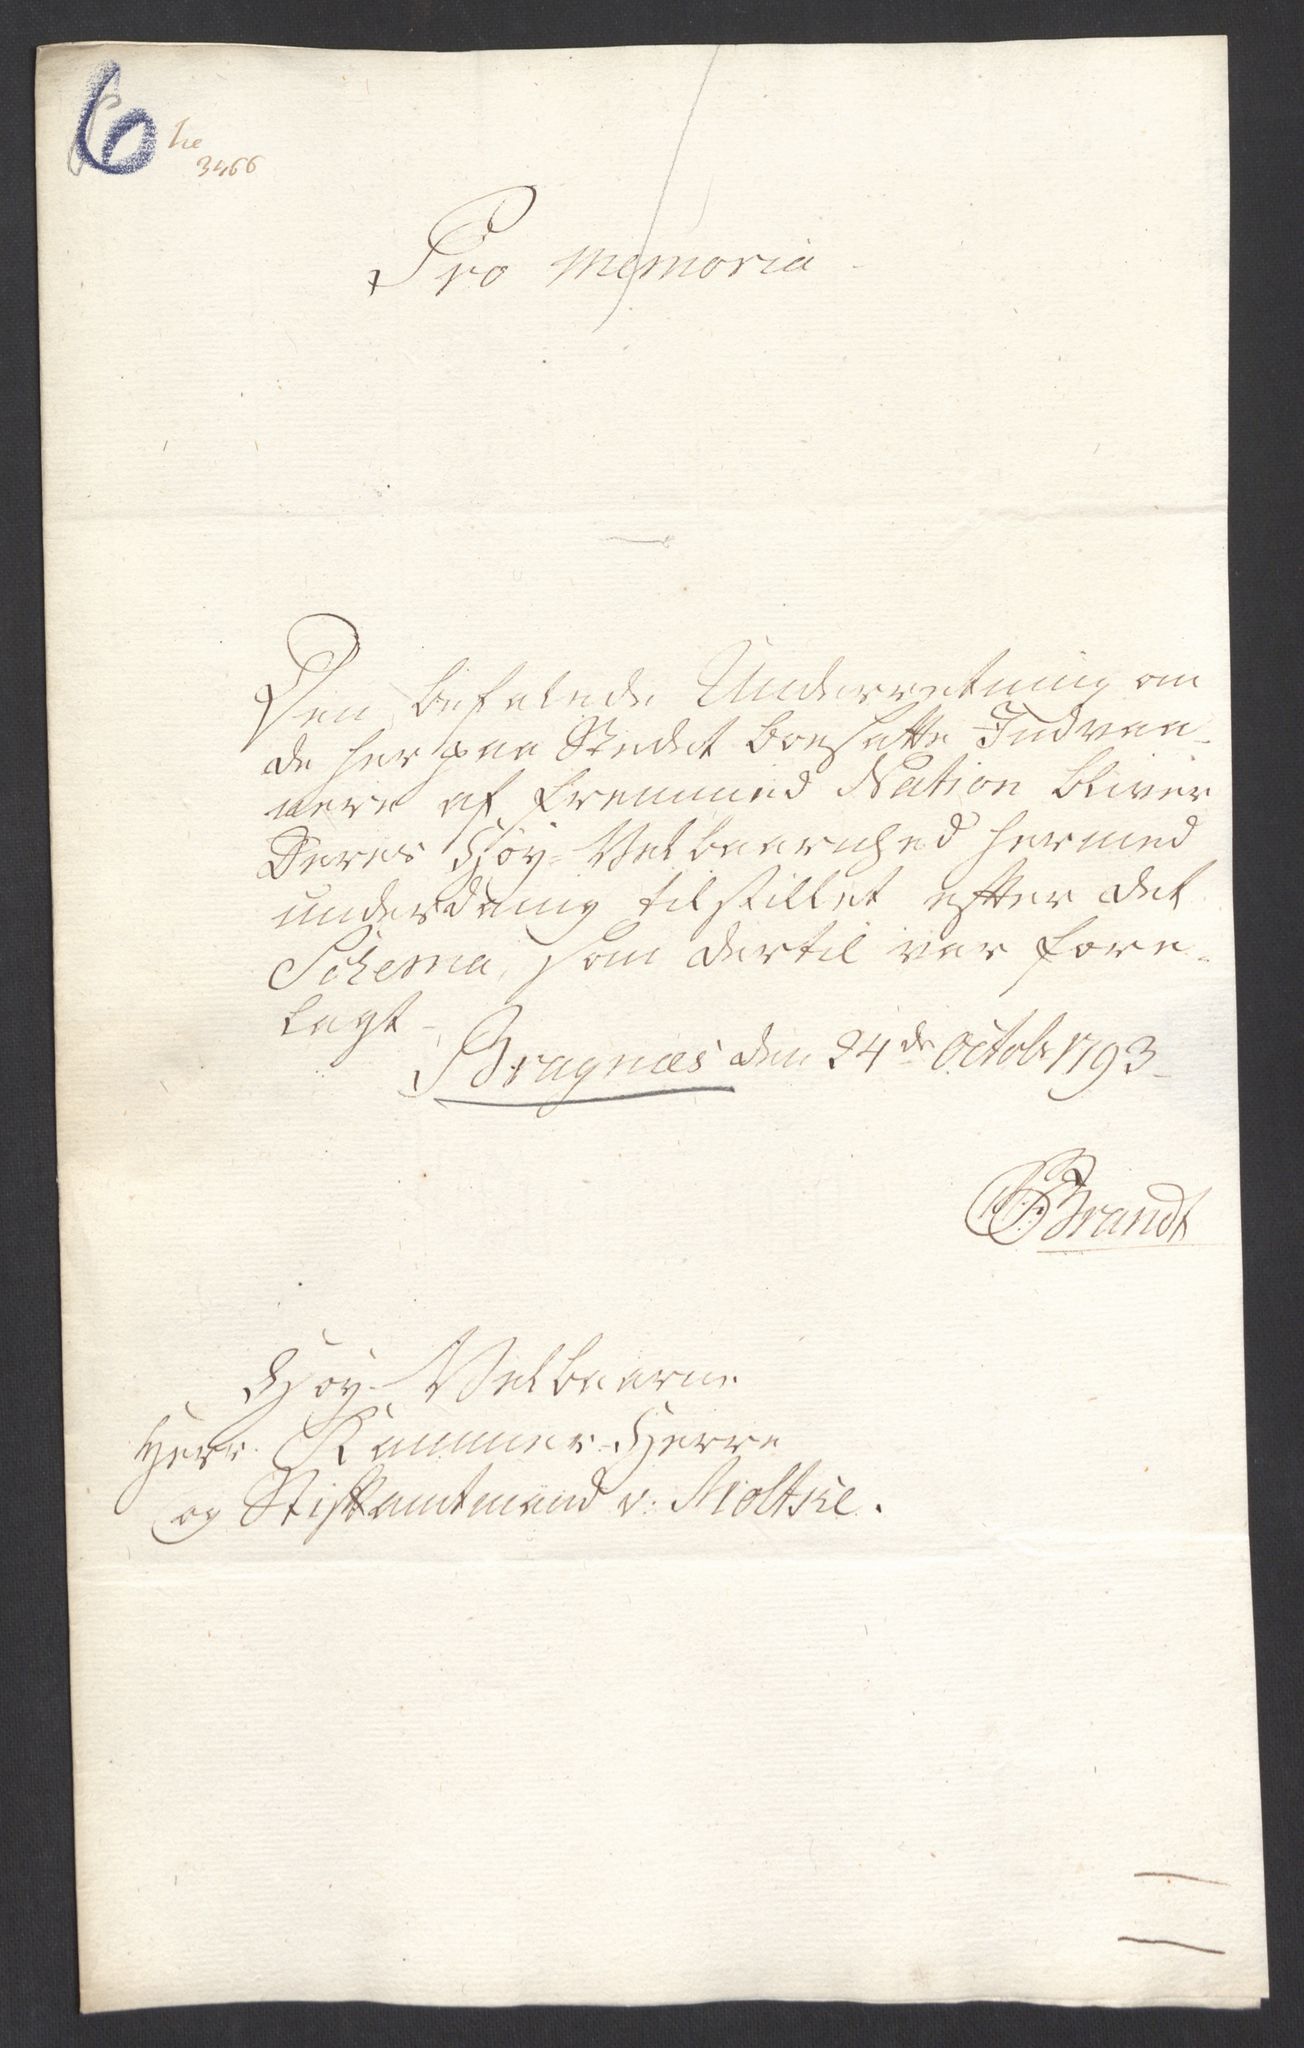 6
3466
Pro Memoria
Den befalede Underretning om
de her paa Stedet boesatte Indvaa-
nere af fremmed Nation bliver
Deres Høy-Velbaarenhed hermed
underdanig tilstillet efter det
Schema, som dertil var fore-
lagt -
Bragnæs den 24de Octobr 1793
Brandt
Høy-Velbaarne
Herr Kammer-Herre
og Stiftamtmand v: Moltke.